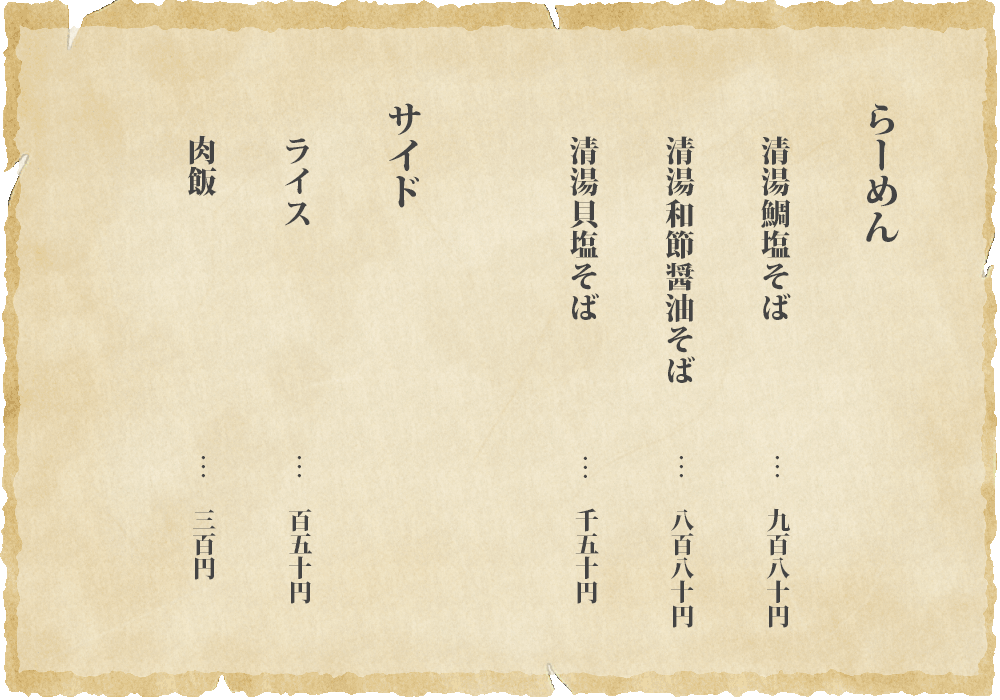 らーめん
清湯鯛塩そば … 九百八十円
清湯和節醤油そば … 八百八十円
清湯貝塩そば … 千五十円
サイド
ライス … 百五十円
肉飯 … 三百円